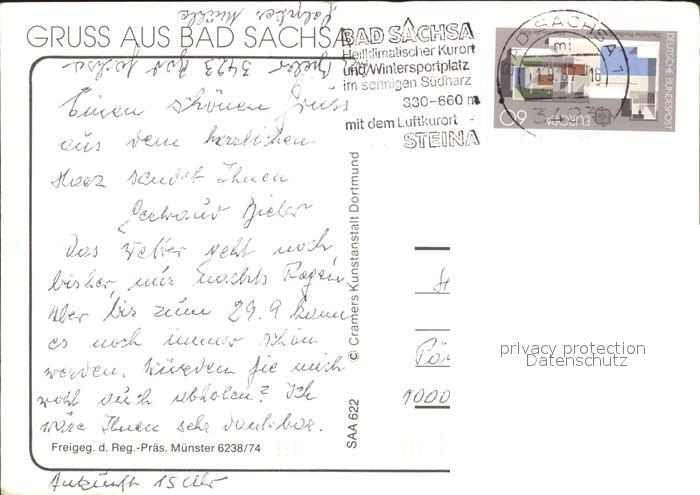 GRUSS AUS BAD SACHSA
3423 Bad Sachsa
Einen schönen Gruss
aus dem herrlichen
Harz sendet Ihnen
Das Wetter geht noch
bisher, nur nachts Regen.
Aber bis zum 29.9 kann
es noch immer schön
werden. Würden Sie mich
wohl auch abholen? Ich
wäre Ihnen sehr dankbar.
Freigeg. d. Reg.-Präs. Münster 6238/74
Ankunft 15 Uhr
SAA 622 © Cramers Kunstanstalt Dortmund
BAD SACHSA
Heilklimatischer Kurort
und Wintersportplatz
im sonnigen Südharz
330-660 m
mit dem Luftkurort
STEINA
BAD SACHSA 1
mi
3423
DEUTSCHE BUNDESPOST
EUROPA
60
H
1000
privacy protection
Datenschutz